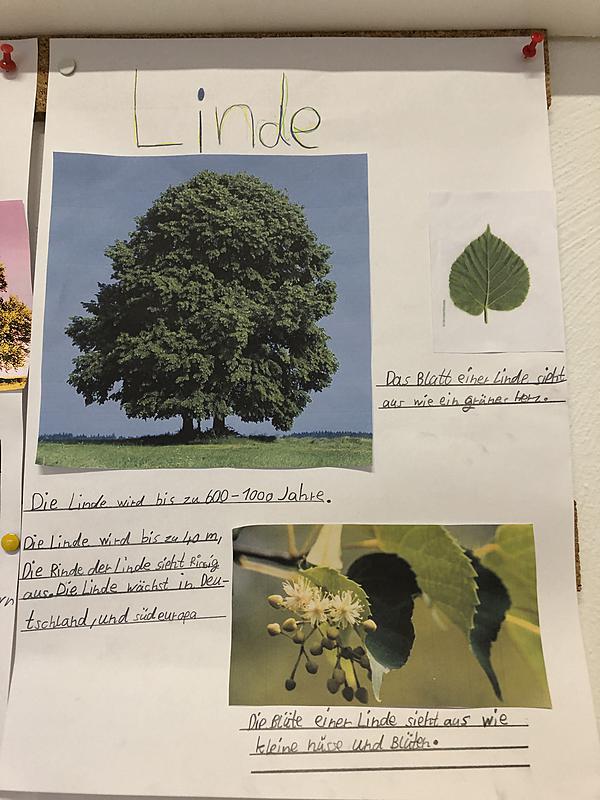 Linde
Das Blatt einer Linde sieht
aus wie ein grünes herz.
Die Linde wird bis zu 600-1000 Jahre.
Die Linde wird bis zu 40 m,
Die Rinde der Linde sieht Rissig
aus. Die Linde wächst in Deu-
tschland, und südeuropa
Die Blüte einer Linde sieht aus wie
kleine nüsse und Blüten.